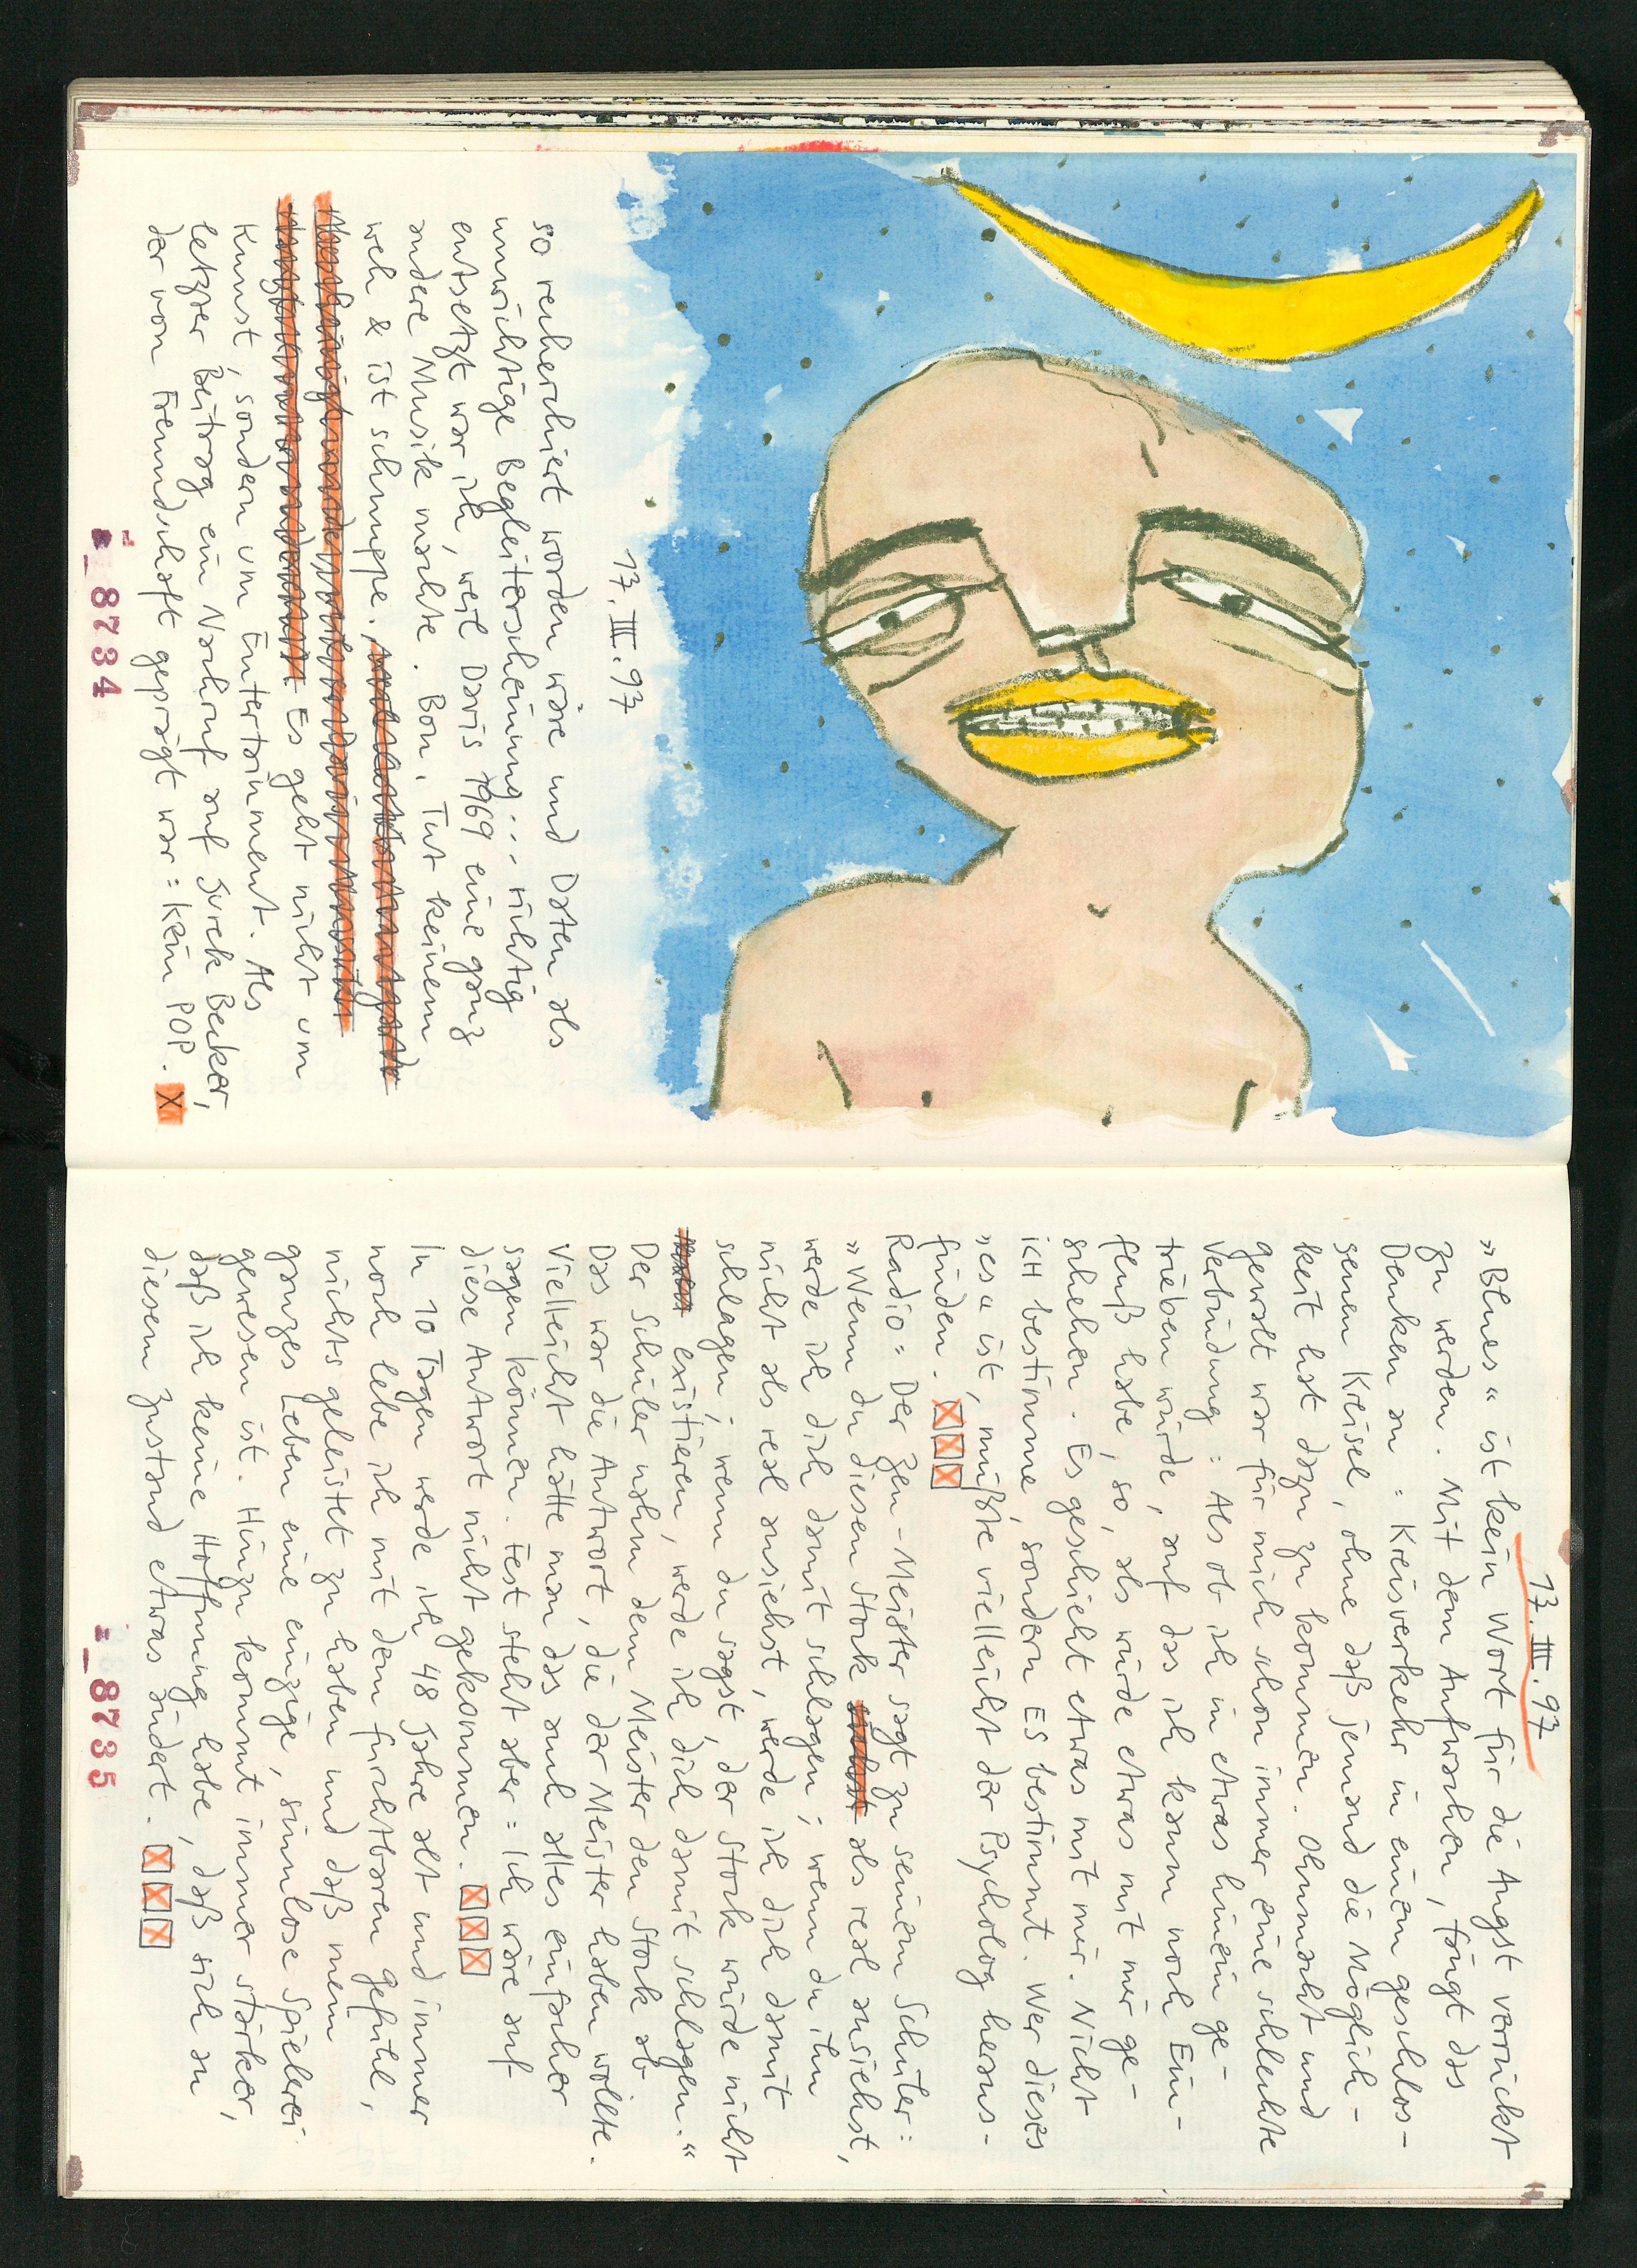 17. III. 97
so recherchiert worden wäre und Daten als
unwichtige Begleiterscheinung... richtig
entsetzt war ich, weil Davis 1969 eine ganz
andere Musik machte. Bon. Tut keinem
weh & ist schnuppe.
Es geht nicht um
Kunst, sondern um Entertainment. Als
letzter Beitrag ein Nachruf auf Jurek Becker,
der von Freundschaft geprägt war: kein POP. X
8734
17. III. 97
»Blues« ist kein Wort für die Angst verrückt
zu werden. Mit dem Aufwachen, fängt das
Denken an: Kreisverkehr in einem geschlos-
senen Kreisel, ohne daß jemand die Möglich-
keit hat dazu zu kommen. Ohnmacht und
gewalt war für mich schon immer eine schlechte
Verbindung: Als ob ich in etwas hinein ge-
trieben würde, auf das ich kaum noch Ein-
fluß habe, so, als würde etwas mit mir ge-
schehen. Es geschieht etwas mit mir. Nicht
ICH bestimme, sondern ES bestimmt. Wer dieses
»es« ist, müßte vielleicht der Psycholog heraus-
finden. XXX
Radio: Der Zen-Meister sagt zu seinem Schüler:
»Wenn du diesen Stock als real ansiehst,
werde ich dich damit schlagen; wenn du ihn
nicht als real ansiehst, werde ich dich damit
schlagen; wenn du sagst, der Stock würde nicht
existieren, werde ich dich damit schlagen.«
Der Schüler nahm dem Meister den Stock ab.
Das war die Antwort, die der Meister haben wollte.
Vielleicht hätte man das auch alles einfacher
sagen können. Fest steht aber: Ich wäre auf
diese Antwort nicht gekommen. XXX
In 10 Tagen werde ich 48 Jahre alt und immer
noch lebe ich mit dem furchtbaren gefühl,
nichts geleistet zu haben und daß mein
ganzes Leben eine einzige, sinnlose Spielerei
gewesen ist. Hinzu kommt immer stärker,
daß ich keine Hoffnung habe, daß sich an
diesem Zustand etwas ändert. XXX
8735